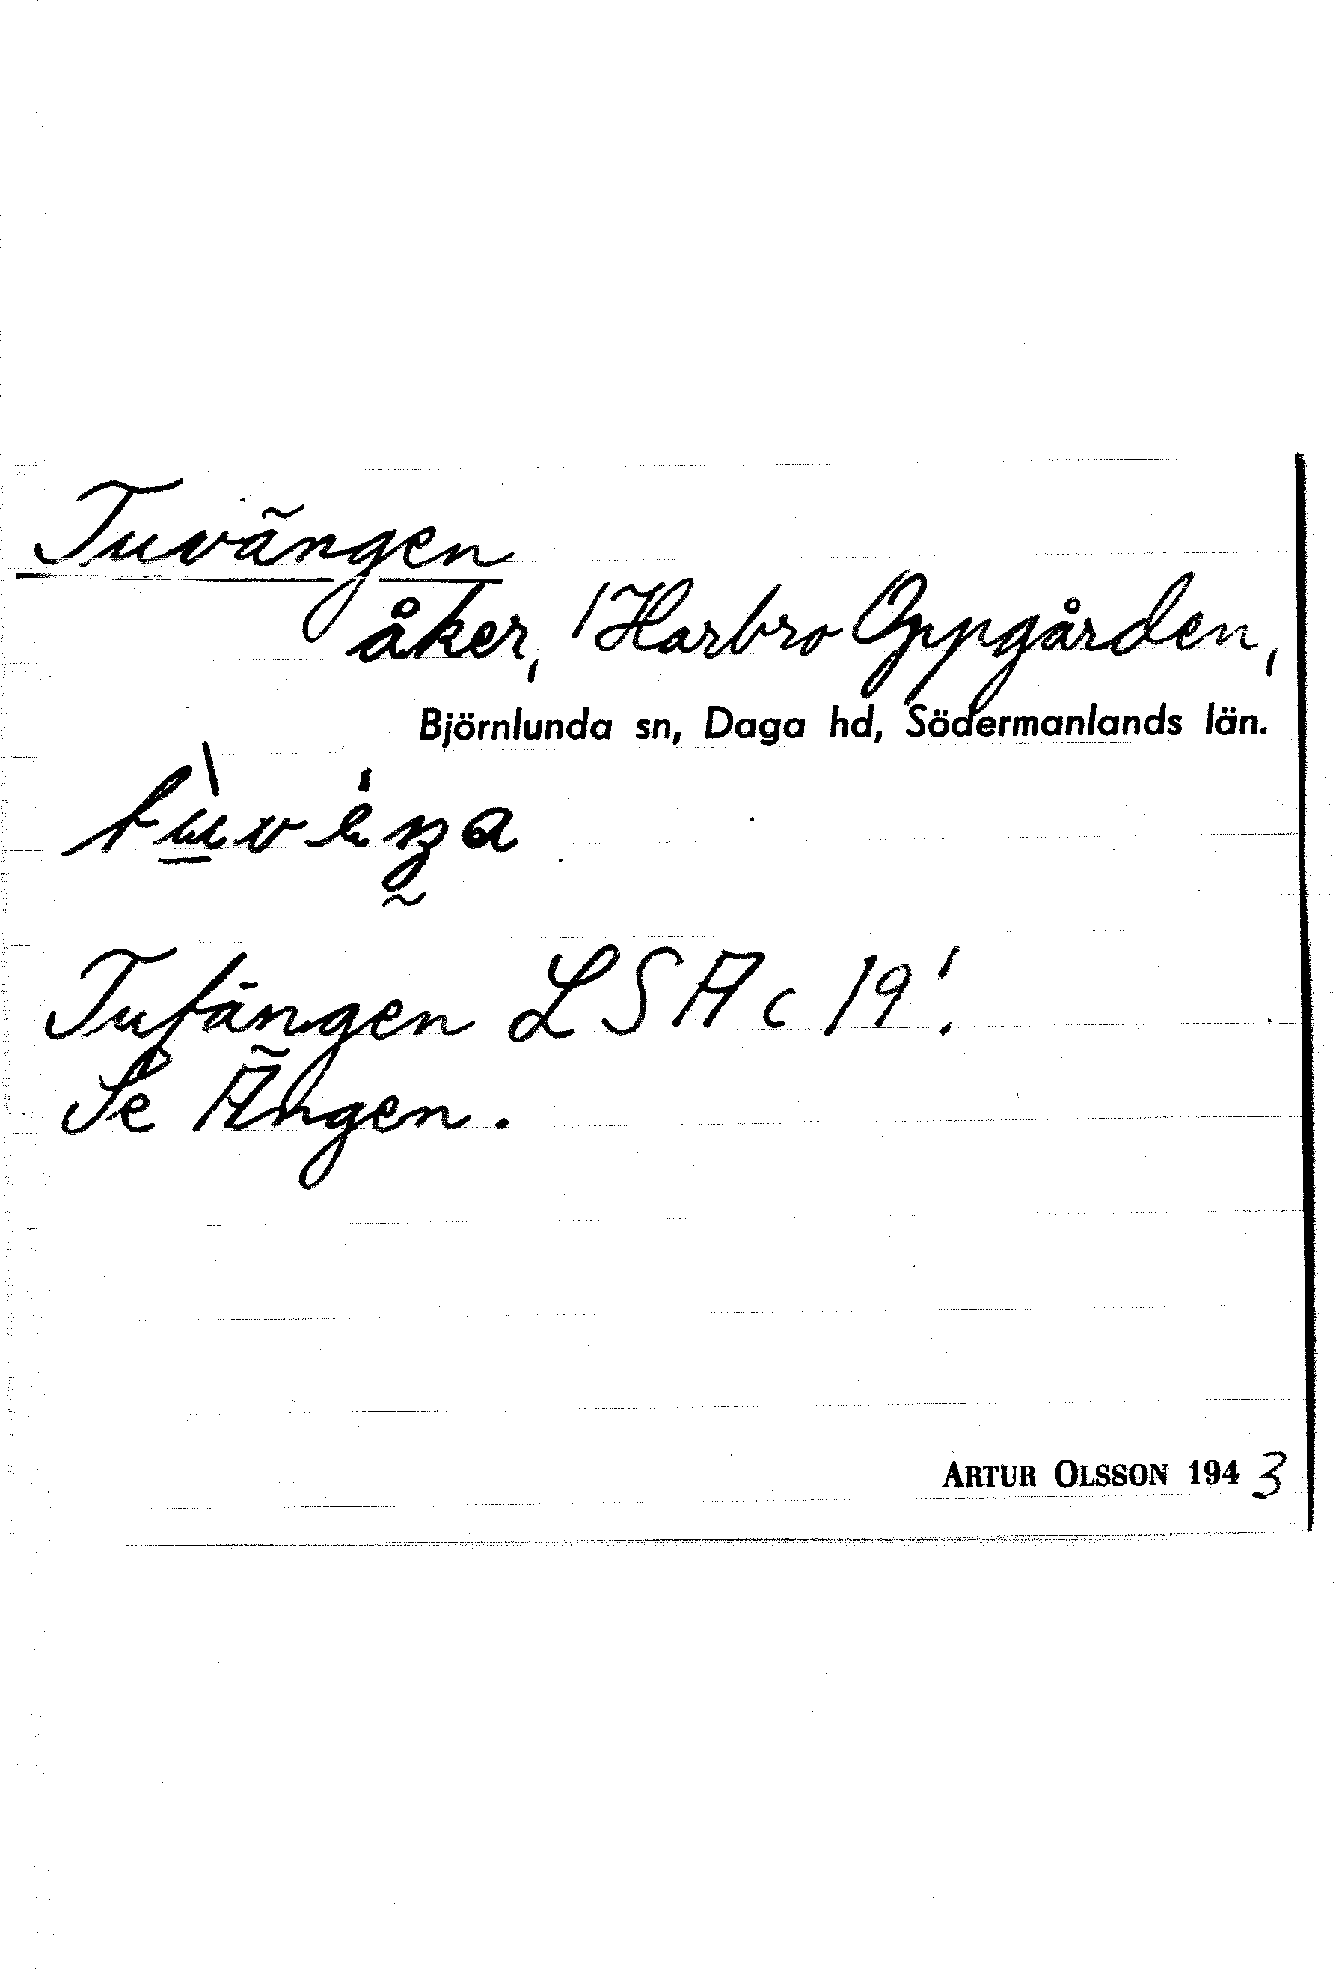 Tuvängen
åker, 1 Harbro Oppgården,
Björnlunda sn, Daga hd, Södermanlands län.
Tufängen LSA c 19!
Se Ängen.
ARTUR OLSSON 1943